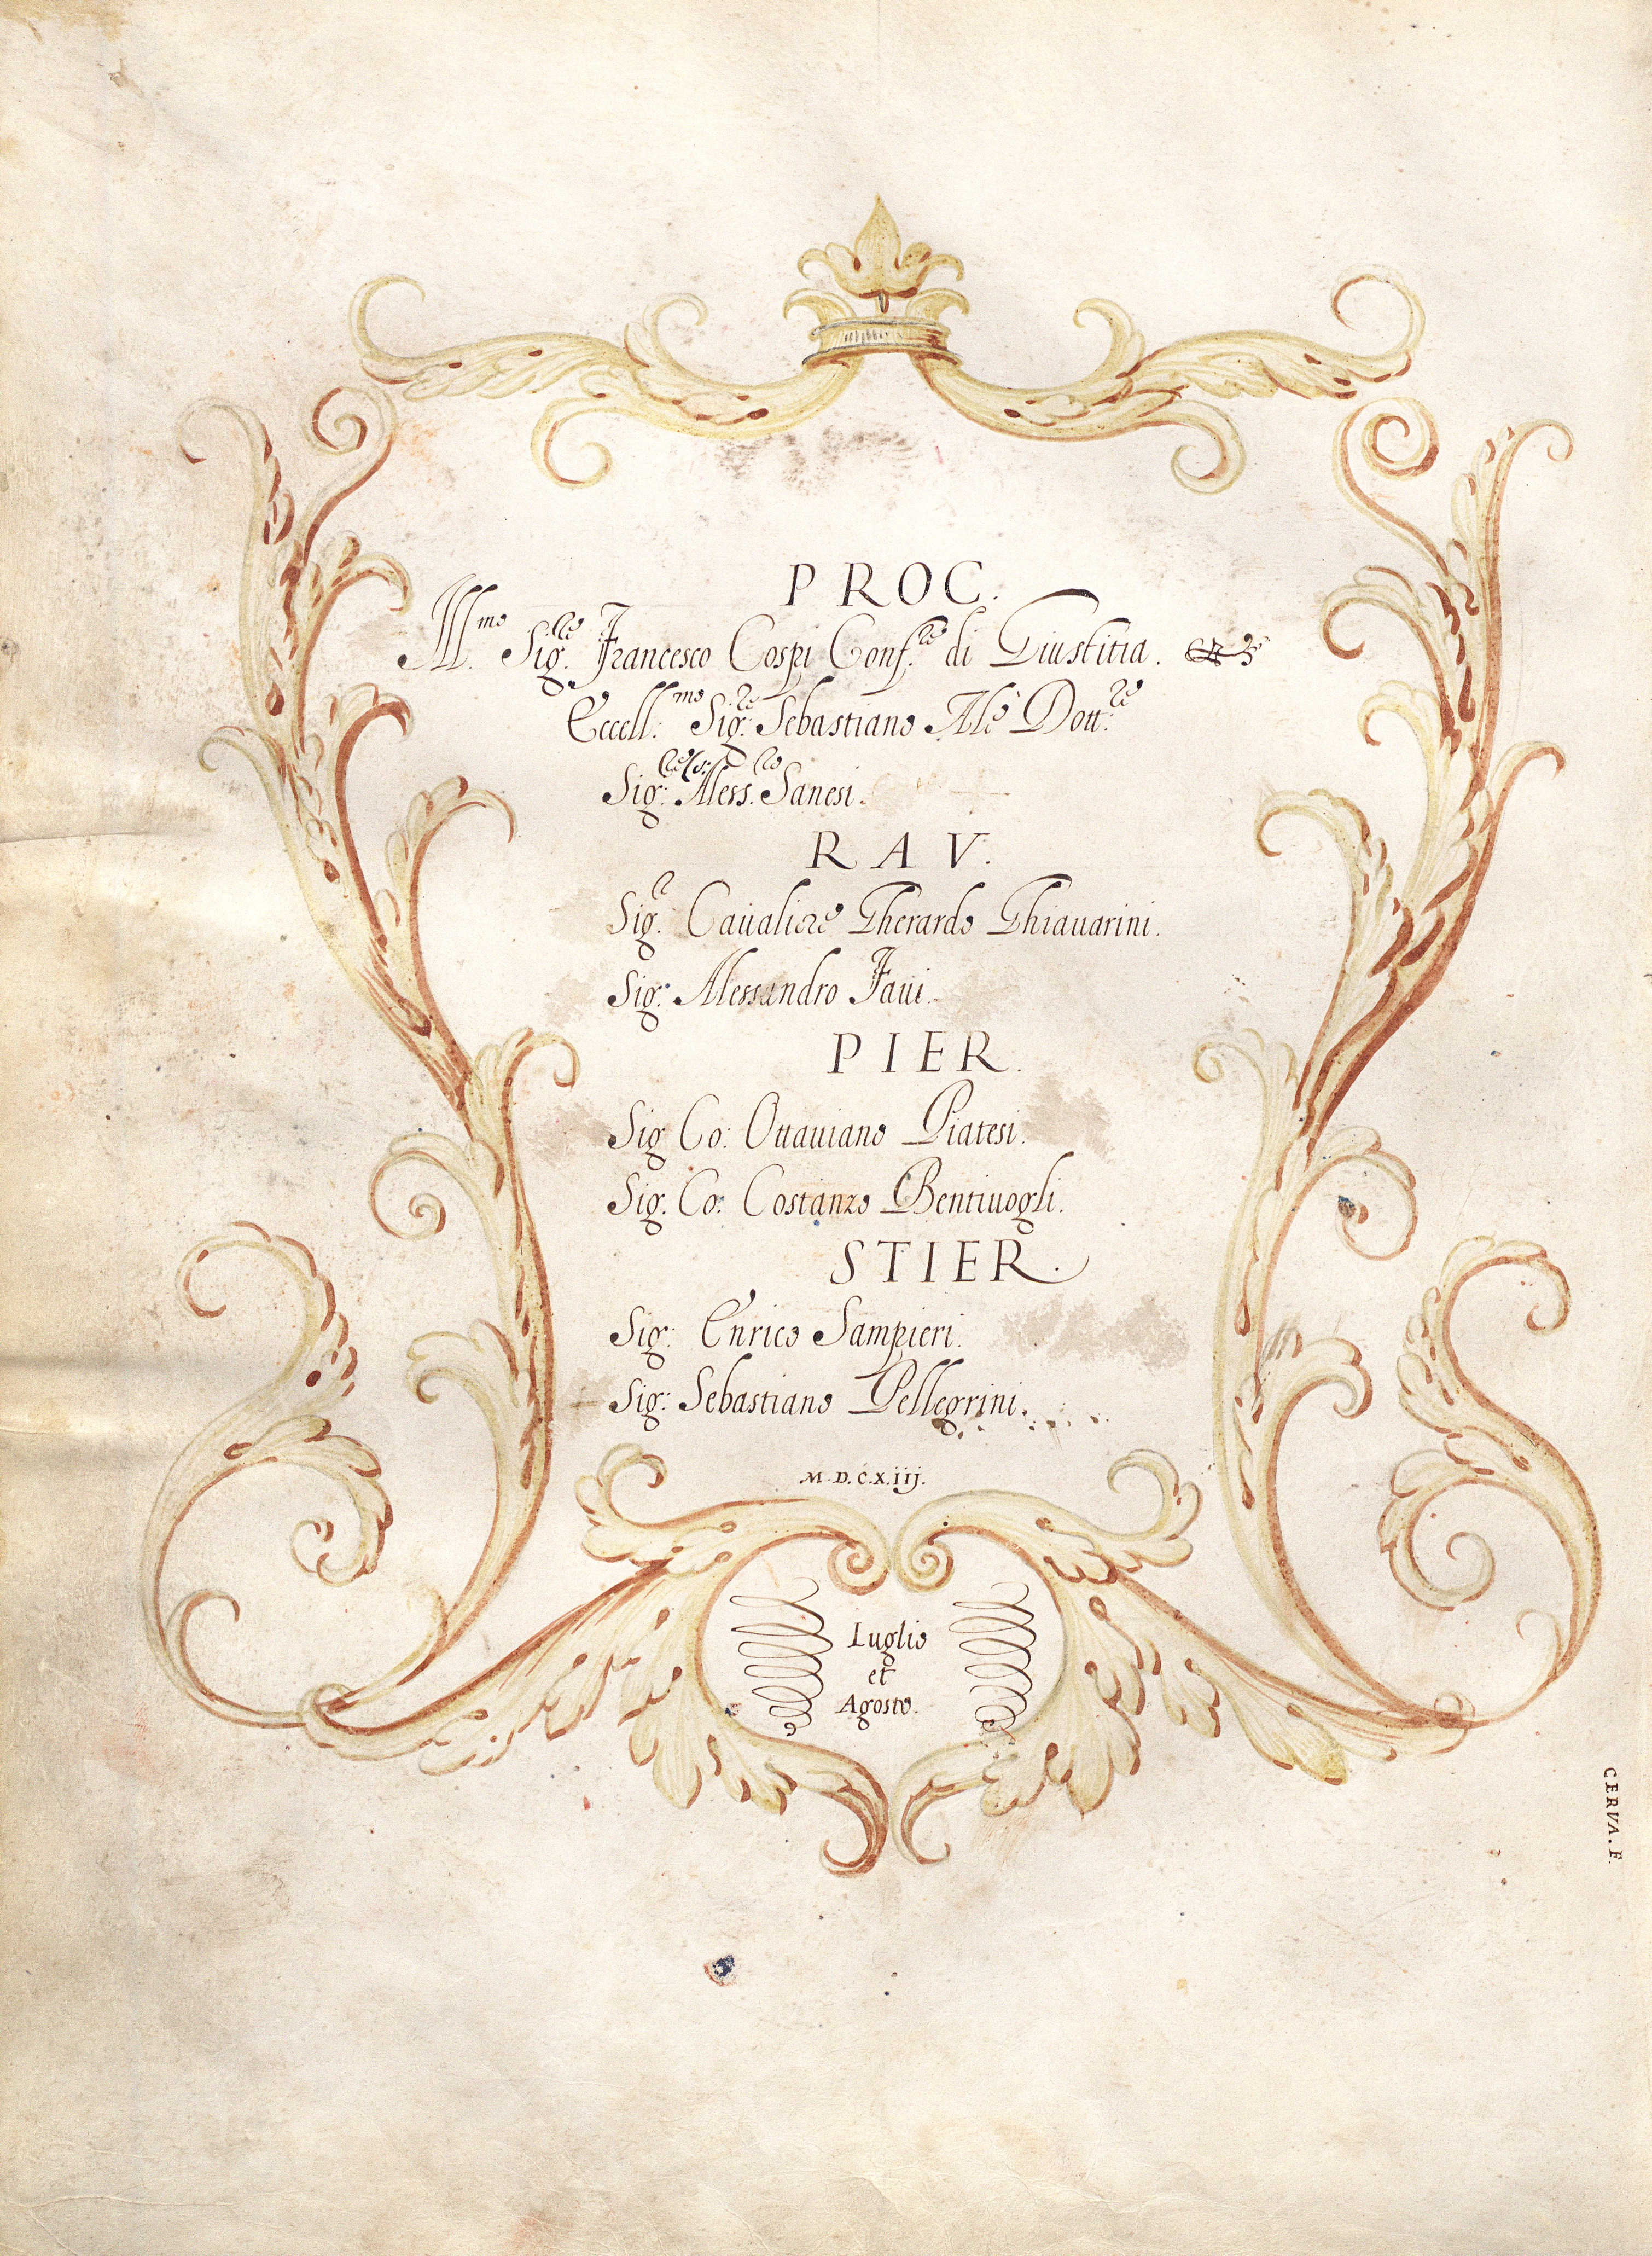 PROC.
Ill.mo Sig.re Francesco Cospi Conf.re di Giustitia.
Eccell.mo Sig.re Sebastiano Alè Dott.re
Sig: Aless. Sanesi.
RAV.
Sig.r Caualiere Gherardo Ghiauarini.
Sig: Alessandro Faui.
PIER.
Sig Co: Ottauiano Piatesi.
Sig. Co: Costanzo Bentiuogli.
STIER.
Sig: Enrico Sampieri.
Sig: Sebastiano Pellegrini.
M.D.C.X.iij.
Luglio
et
Agosto.
CERVA.F.